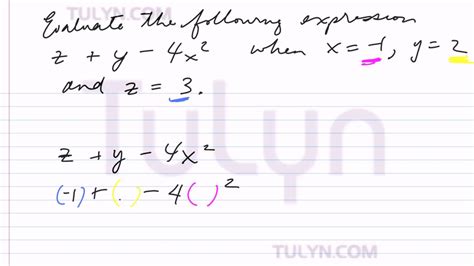 TULYN.COM
Evaluate the following expression
z + y - 4x² when x = -1, y = 2
and z = 3.
TuLyn
z + y - 4x²
(-1) + (.) - 4( )²
TULYN.COM